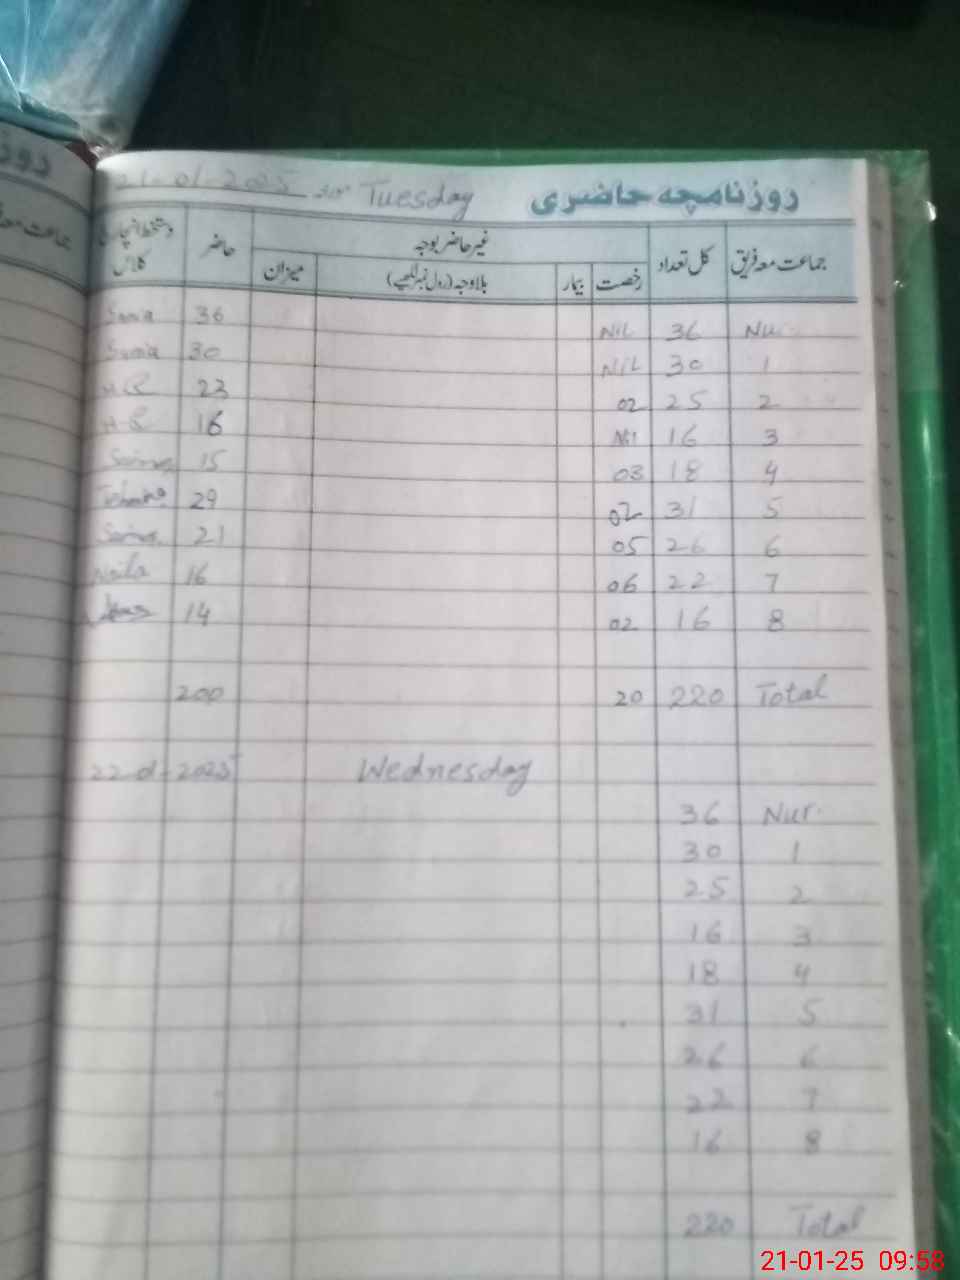 روزنامچہ حاضری Tuesday 21-01-2025
جماعت معہ فریق کل تعداد غیر حاضر بوجہ حاضر دستخط انچارج کلاس
رخصت بیمار بلاوجہ (رول نمبر لکھیے) میزان
Nur. 36 Nil 36 Samia
1 30 Nil 30 Samia
2 25 02 23
3 16 Nil 16
4 18 03 15
5 31 02 29
6 26 05 21
7 22 06 16 Naila
8 16 02 14
Total 220 20 200
22-01-2025 Wednesday
Nur. 36
1 30
2 25
3 16
4 18
5 31
6 26
7 22
8 16
Total 220
21-01-25 09:58